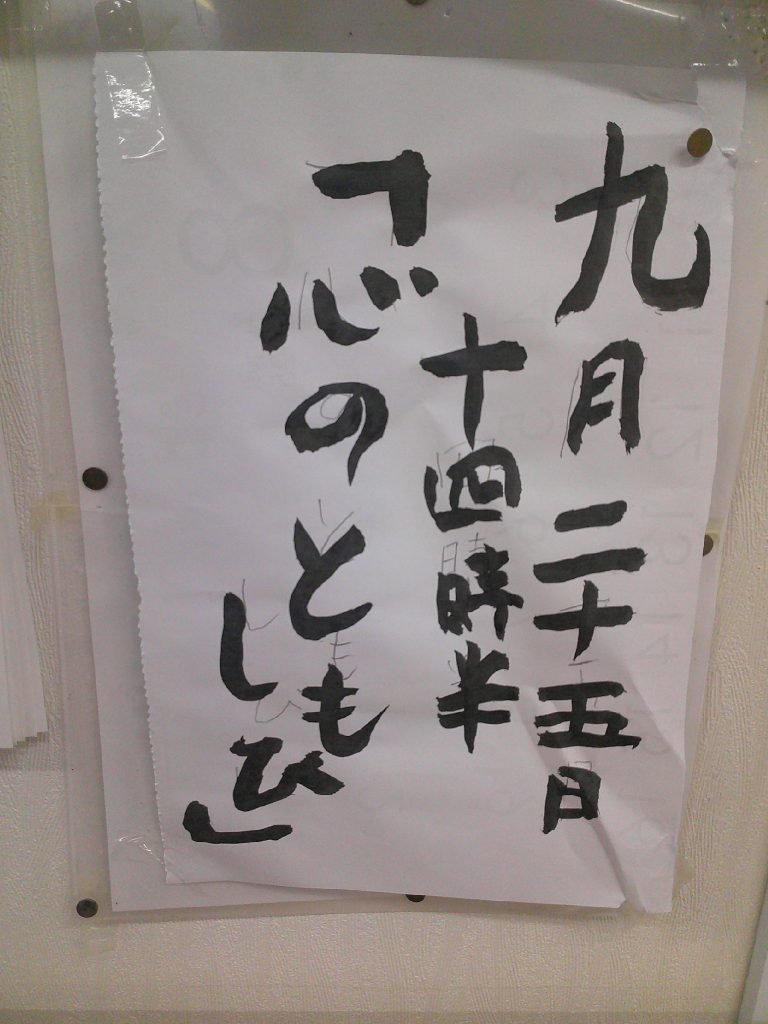 九月二十五日
十四時半
「心のともしび」